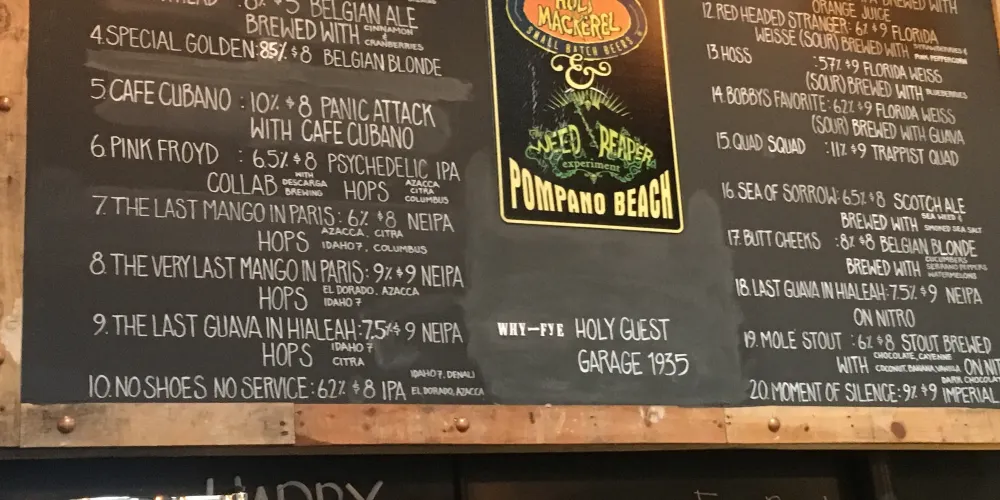 BELGIAN ALE
BREWED WITH CINNAMON & CRANBERRIES
4. SPECIAL GOLDEN: 8.5% $8 BELGIAN BLONDE
5. CAFE CUBANO : 10% $8 PANIC ATTACK
WITH CAFE CUBANO
6. PINK FROYD : 6.5% $8 PSYCHEDELIC IPA
COLLAB WITH DESCARGA BREWING HOPS AZACCA CITRA COLUMBUS
7. THE LAST MANGO IN PARIS: 6% $8 NEIPA
HOPS AZACCA, CITRA IDAHO 7, COLUMBUS
8. THE VERY LAST MANGO IN PARIS: 9% $9 NEIPA
HOPS EL DORADO, AZACCA IDAHO 7
9. THE LAST GUAVA IN HIALEAH: 7.5% $9 NEIPA
HOPS IDAHO 7 CITRA
10. NO SHOES NO SERVICE: 6.2% $8 IPA IDAHO 7, DENALI EL DORADO, AZACCA
HOLY
MACKEREL
SMALL BATCH BEERS
&
WEED REAPER
experiment
POMPANO BEACH
WHY-FYE HOLY GUEST
GARAGE 1935
BREWED WITH
ORANGE JUICE
12. RED HEADED STRANGER: 6% $9 FLORIDA
WEISSE (SOUR) BREWED WITH STRAWBERRIES & PINK PEPPERCORN
13 HOSS : 5.7% $9 FLORIDA WEISS
(SOUR) BREWED WITH BLUEBERRIES
14. BOBBYS FAVORITE: 6.2% $9 FLORIDA WEISS
(SOUR) BREWED WITH GUAVA
15. QUAD SQUAD : 11% $9 TRAPPIST QUAD
16. SEA OF SORROW: 6.5% $8 SCOTCH ALE
BREWED WITH SEA WEED & SMOKED SEA SALT
17. BUTT CHEEKS : 8% $8 BELGIAN BLONDE
BREWED WITH CUCUMBERS SERRANO PEPPERS WATERMELONS
18. LAST GUAVA IN HIALEAH: 7.5% $9 NEIPA
ON NITRO
19. MOLE STOUT : 6% $8 STOUT BREWED
WITH CHOCOLATE, CAYENNE COCONUT, BANANA, VANILLA ON NIT
DARK CHOCOLA
20. MOMENT OF SILENCE: 9% $9 IMPERIAL
HAPPY